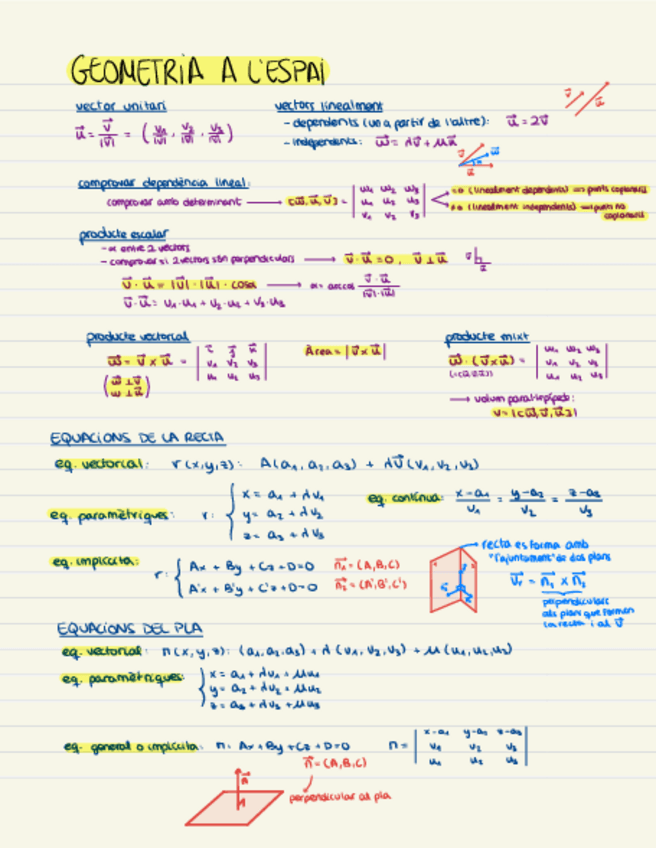 GEOMETRIA A L'ESPAI
vector unitari
u⃗ = v⃗/|v⃗| = (v₁/|v⃗|, v₂/|v⃗|, v₃/|v⃗|)
vectors linealment
- dependents (un a partir de l'altre): u⃗ = 2v⃗
- independents: w⃗ = λv⃗ + μu⃗
comprovar dependència lineal:
comprovar amb determinant → [w⃗, u⃗, v⃗] = | w₁ w₂ w₃ |
| u₁ u₂ u₃ |
| v₁ v₂ v₃ |
=0 (linealment dependents) → punts coplanaris
≠0 (linealment independents) → punts no
coplanaris
producte escalar
- α entre 2 vectors
- comprovar si 2 vectors són perpendiculars → v⃗ · u⃗ = 0, v⃗ ⊥ u⃗
v⃗ · u⃗ = |v⃗| · |u⃗| · cosα → α = arccos v⃗ · u⃗ / |v⃗| · |u⃗|
v⃗ · u⃗ = v₁ · u₁ + v₂ · u₂ + v₃ · u₃
producte vectorial
w⃗ = v⃗ × u⃗ = | i⃗ j⃗ k⃗ |
| v₁ v₂ v₃ |
| u₁ u₂ u₃ |
(w⃗ ⊥ u⃗
w ⊥ v⃗)
Àrea = |v⃗ × u⃗|
producte mixt
w⃗ · (v⃗ × u⃗) = | w₁ w₂ w₃ |
| v₁ v₂ v₃ |
| u₁ u₂ u₃ |
→ volum paral·lepípede:
V = |[w⃗, v⃗, u⃗]|
EQUACIONS DE LA RECTA
eq. vectorial: r(x,y,z): A(a₁, a₂, a₃) + λv⃗(v₁, v₂, v₃)
eq. paramètriques: r: { x = a₁ + λv₁
y = a₂ + λv₂
z = a₃ + λv₃
eq. contínua: x-a₁/v₁ = y-a₂/v₂ = z-a₃/v₃
eq. implícita: r: { Ax + By + Cz + D = 0 n₁⃗ = (A,B,C)
A'x + B'y + C'z + D = 0 n₂⃗ = (A',B',C')
→ recta es forma amb
"l'ajuntament" de dos plans
v⃗r = n₁⃗ × n₂⃗
perpendiculars
als plans que formen
la recta i al v⃗
EQUACIONS DEL PLA
eq. vectorial: π(x,y,z): (a₁,a₂,a₃) + λ(v₁,v₂,v₃) + μ(u₁,u₂,u₃)
eq. paramètriques: { x = a₁ + λv₁ + μu₁
y = a₂ + λv₂ + μu₂
z = a₃ + λv₃ + μu₃
eq. general o implícita: π: Ax + By + Cz + D = 0 π = | x-a₁ y-a₂ z-a₃ |
| v₁ v₂ v₃ |
| u₁ u₂ u₃ |
n⃗ = (A,B,C)
perpendicular al pla